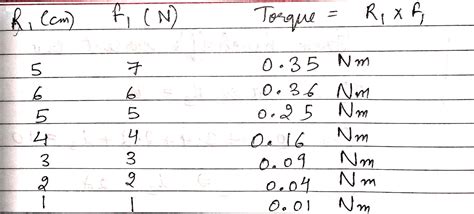 R₁ (cm) F₁ (N) Torque = R₁ x F₁
5 7 0.35 Nm
6 6 0.36 Nm
5 5 0.25 Nm
4 4 0.16 Nm
3 3 0.09 Nm
2 2 0.04 Nm
1 1 0.01 Nm